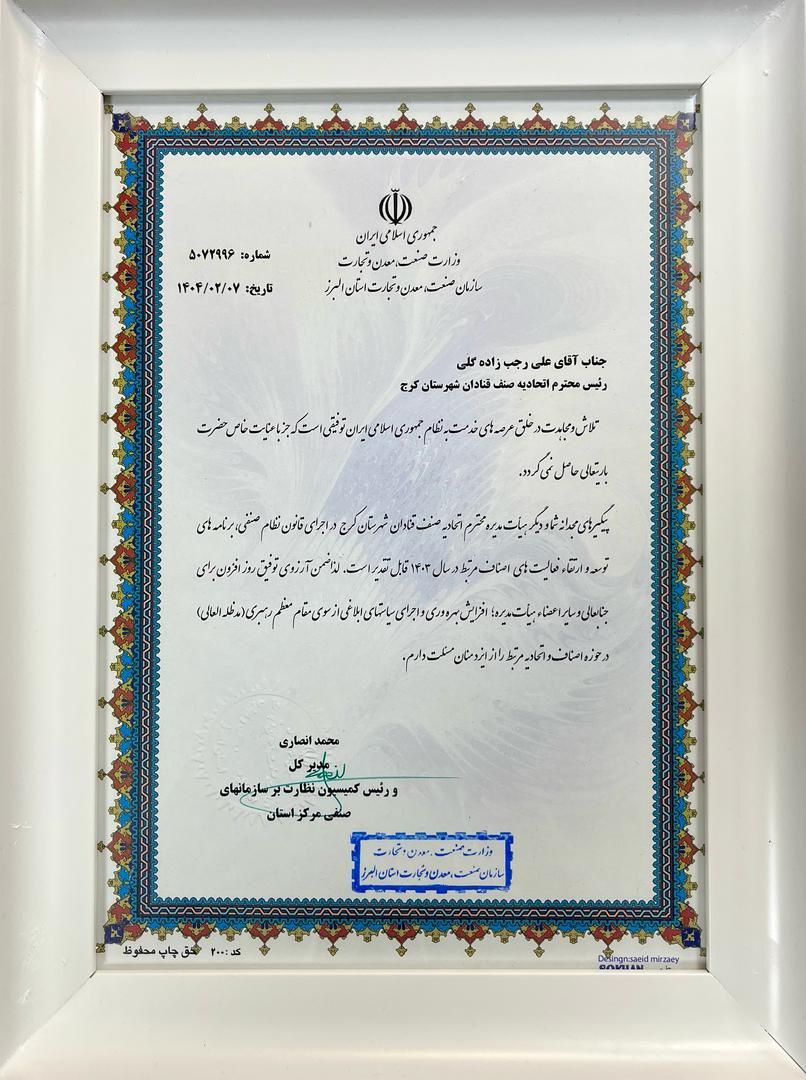 جمهوری اسلامی ایران
وزارت صنعت، معدن و تجارت
سازمان صنعت، معدن و تجارت استان البرز
شماره: ۵۰۷۲۹۹۶
تاریخ: ۱۴۰۴/۰۲/۰۷
جناب آقای علی رجب زاده گلی
رئیس محترم اتحادیه صنف قنادان شهرستان کرج
تلاش و مجاهدت در خلق عرصه های خدمت به نظام جمهوری اسلامی ایران توفیقی است که جز با عنایت خاص حضرت
باریتعالی حاصل نمی گردد.
پیگیرهای مجدانه شما و دیگر هیأت مدیره محترم اتحادیه صنف قنادان شهرستان کرج در اجرای قانون نظام صنفی، برنامه های
توسعه و ارتقاء فعالیت های اصناف مرتبط در سال ۱۴۰۳ قابل تقدیر است. لذا ضمن آرزوی توفیق روز افزون برای
جنابعالی و سایر اعضاء هیأت مدیره؛ افزایش بهره وری و اجرای سیاستهای ابلاغی از سوی مقام معظم رهبری (مدظله العالی)
در حوزه اصناف و اتحادیه مرتبط را از ایزد منان مسئلت دارم.
محمد انصاری
مدیر کل
و رئیس کمیسیون نظارت بر سازمانهای
صنفی مرکز استان
وزارت صنعت، معدن و تجارت
سازمان صنعت، معدن و تجارت استان البرز
کد: ۲۰۰ حق چاپ محفوظ
Desingn:saeid mirzaey